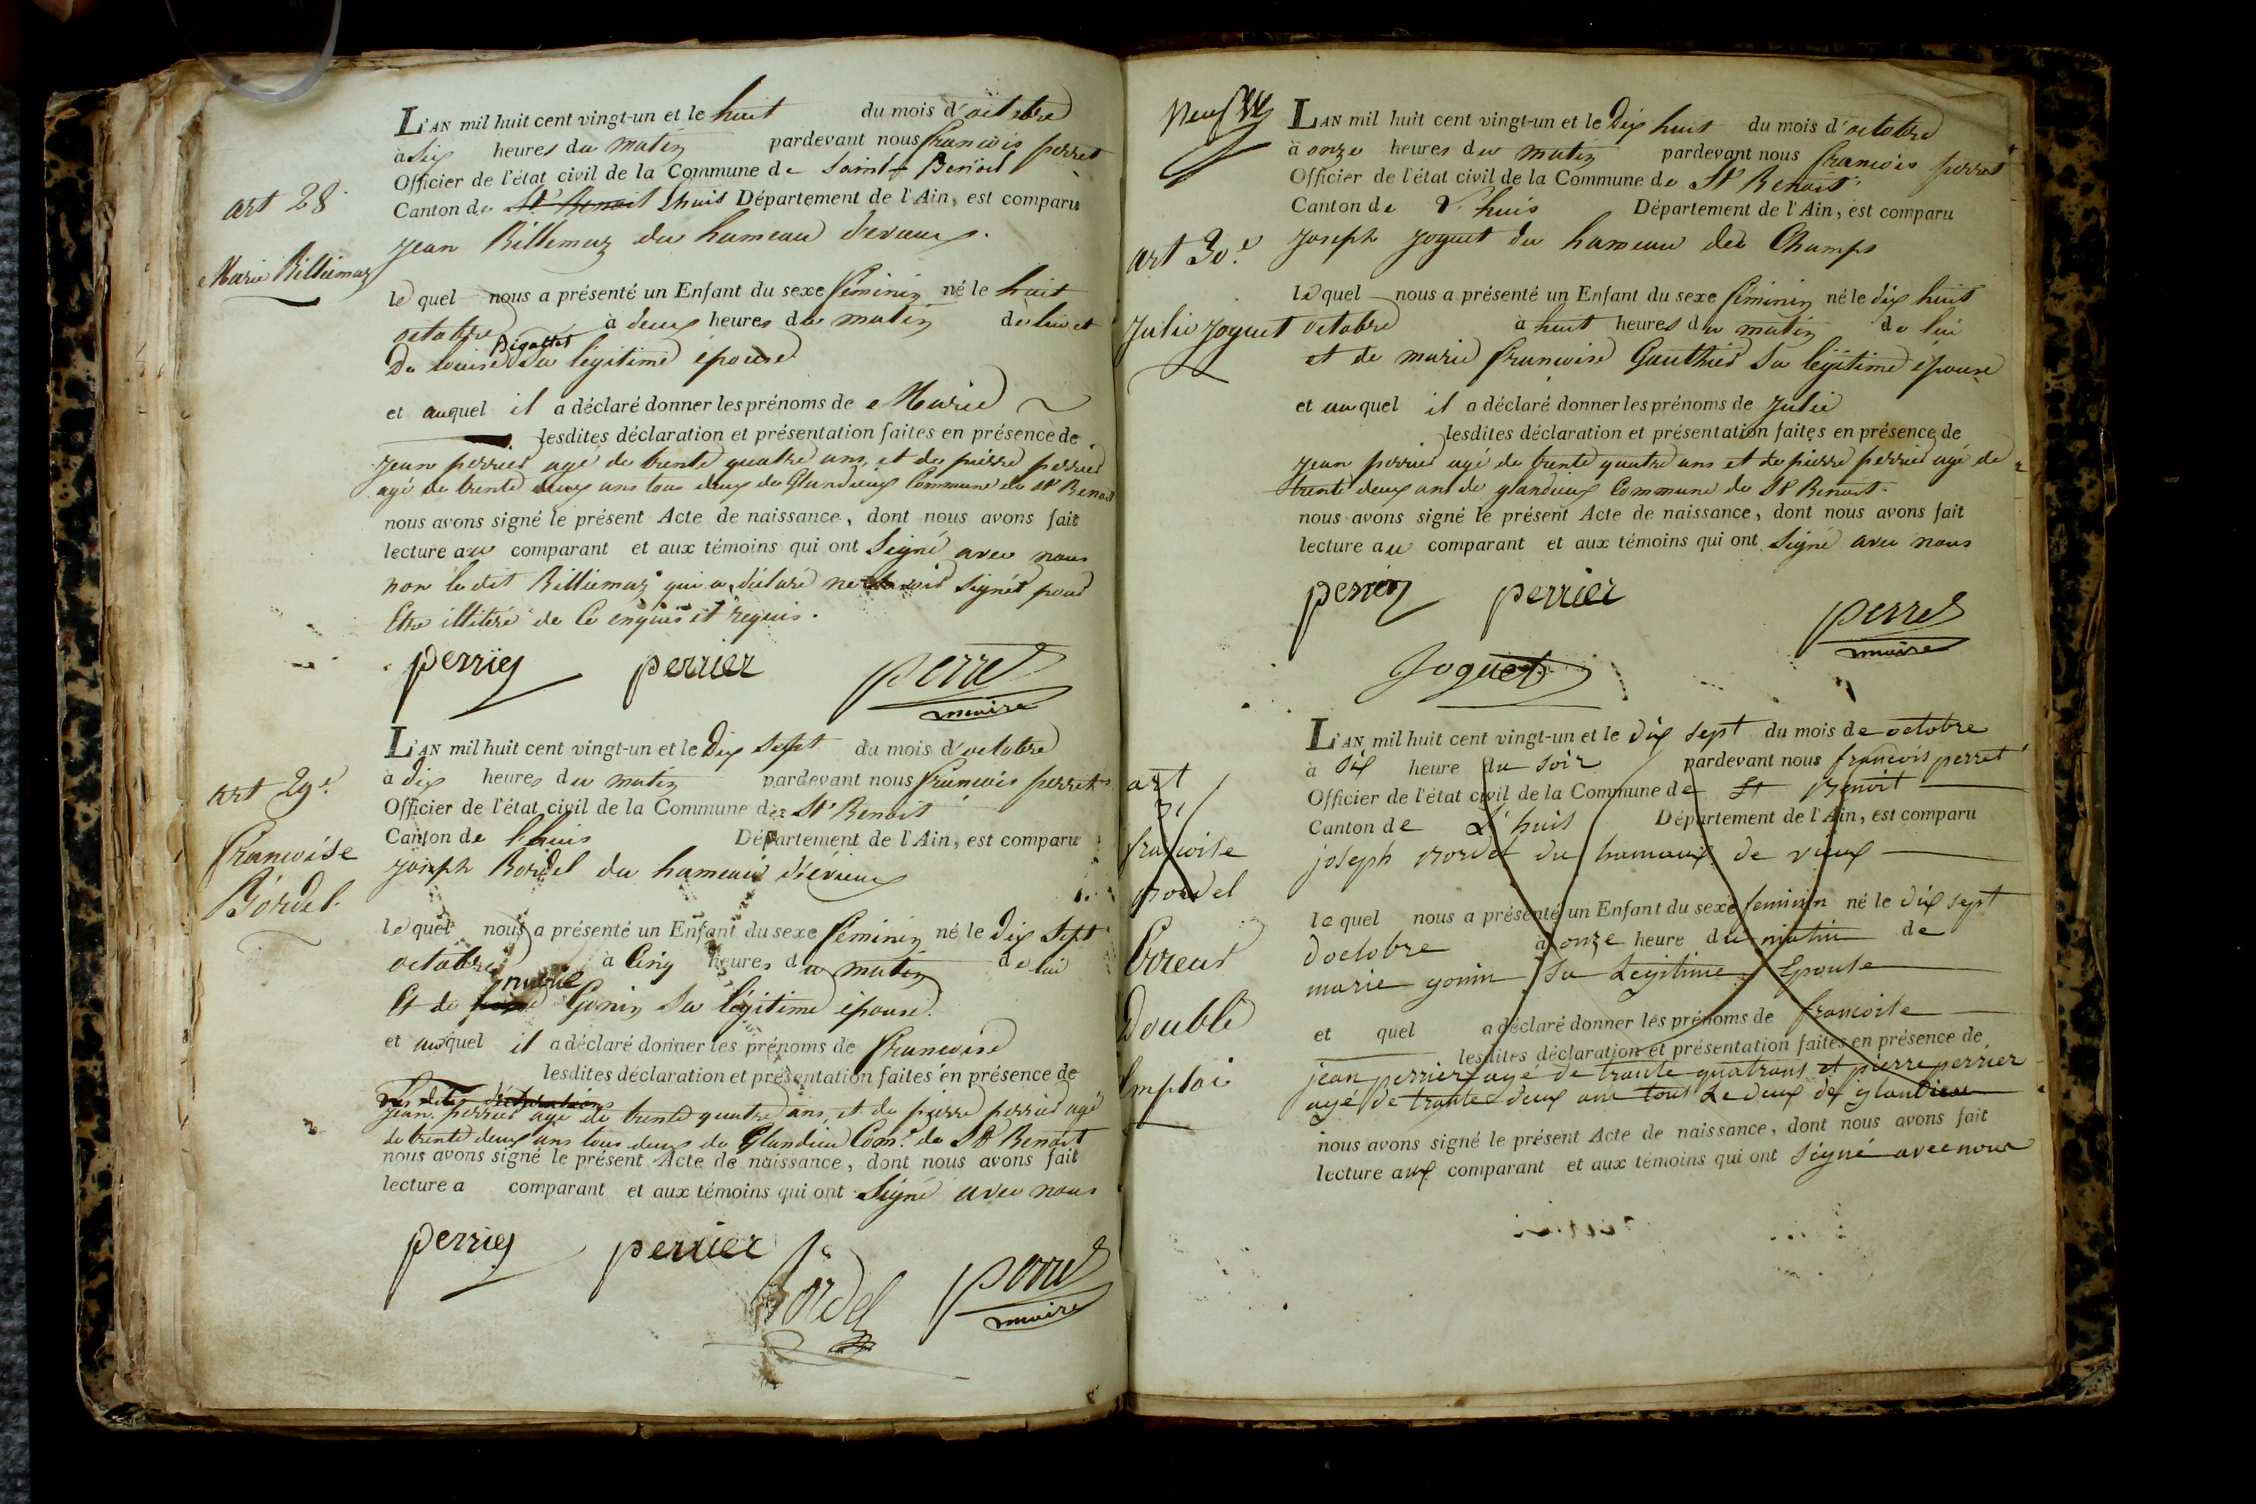 art 28.
Marie Billiemaz
L'AN mil huit cent vingt-un et le huit du mois d'octobre
à six heures du matin pardevant nous francois perret
Officier de l'état civil de la Commune de Saint Benoit
Canton de St Benoit Lhuis Département de l'Ain, est comparu
Jean Billiemaz du hameau d'evieux.
le quel nous a présenté un Enfant du sexe féminin né le huit
octobre à deux heures du matin de lui et
De louise Bigallet Sa légitime épouse
et auquel il a déclaré donner les prénoms de Marie
lesdites déclaration et présentation faites en présence de
Jean perrier agé de trente quatre ans, et de pierre perrier
agé de trente deux ans tous deux de Glandieux Commune de St Benoit
nous avons signé le présent Acte de naissance, dont nous avons fait
lecture au comparant et aux témoins qui ont Signé avec nous
non le dit Billiemaz qui a déclaré ne savoir signer pour
Etre illitéré de Ce enquis et requis.
perrier perrier perret
maire
art 29e
francoise
Bordel
L'AN mil huit cent vingt-un et le Dix sept du mois d'octobre
à dix heures du matin pardevant nous francois perret
Officier de l'état civil de la Commune de St Benoit
Canton de Lhuis Département de l'Ain, est comparu
Joseph Bordel du hameau d'évieux
le quel nous a présenté un Enfant du sexe féminin né le Dix Sept
octobre à Cinq heures du matin de lui
Et de marie Gonin Sa légitime épouse.
et auquel il a déclaré donner les prénoms de francoise
lesdites déclaration et présentation faites en présence de
Jean perrier agé de trente quatre ans, et de pierre perrier agé
de trente deux ans tous deux de Glandieu Com.e de St Benoit
nous avons signé le présent Acte de naissance, dont nous avons fait
lecture a comparant et aux témoins qui ont Signé avec nous
perrier perrier Bordel perret
maire
Neuf
art 30.e
Julie Joguet
L'AN mil huit cent vingt-un et le Dix huit du mois d'octobre
à onze heures du matin pardevant nous francois perret
Officier de l'état civil de la Commune de St Benoit
Canton de L'huis Département de l'Ain, est comparu
Joseph Joguet du hameau des Champs
le quel nous a présenté un Enfant du sexe féminin né le dix huit
octobre à huit heures du matin de lui
et de marie francoise Gauthier Sa légitime épouse
et auquel il a déclaré donner les prénoms de Julie
lesdites déclaration et présentation faites en présence de
Jean perrier agé de trente quatre ans et de pierre perrier agé de
trente deux ans de glandieux Commune de St Benoit.
nous avons signé le présent Acte de naissance, dont nous avons fait
lecture au comparant et aux témoins qui ont Signé avec nous
perrier perrier perret
maire
Joguet
art
31
francoise
Bordel
Erreur
Double
Emploi
L'AN mil huit cent vingt-un et le dix sept du mois de octobre
à six heure du soir pardevant nous francois perret
Officier de l'état civil de la Commune de St Benoit
Canton de L'huis Département de l'Ain, est comparu
joseph Bordel du hamaux de vieux
le quel nous a présenté un Enfant du sexe feminin né le dix sept
doctobre à onze heure du matin de
marie gonin sa Legitime Epouse
et quel a déclaré donner les prénoms de francoise
lesdites déclaration et présentation faites en présence de
jean perrier agé de trante quatrans et pierre perrier
age de trante deux ans tous Le deux de glandieu
nous avons signé le présent Acte de naissance, dont nous avons fait
lecture aux comparant et aux témoins qui ont signé avec nous